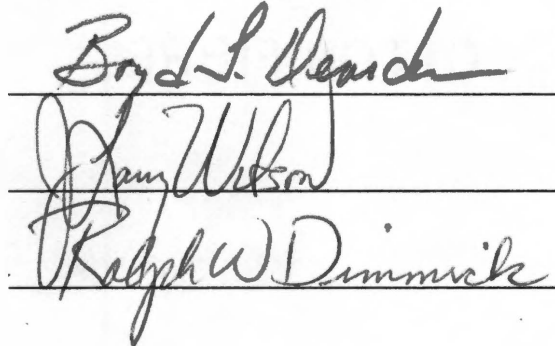 Boyd L. Dearden
J. Larry Wilson
Ralph W Dimmick